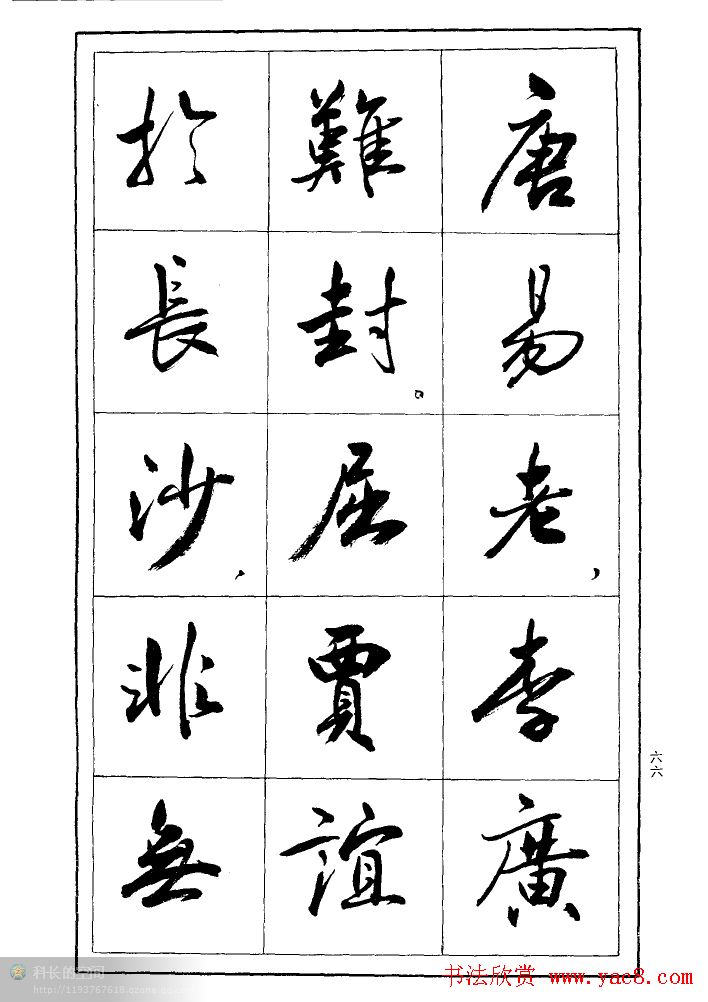 唐易老，李廣
難封。屈賈誼
於長沙，非無
六六
科长的空间
http://1193767618.qzone.qq.com
书法欣赏 www.yac8.com